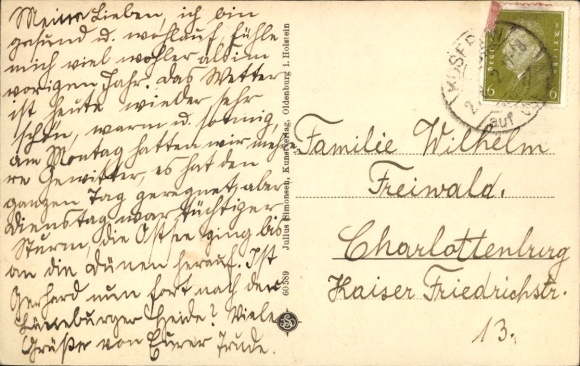 Meine Lieben, ich bin
gesund u. wohlauf, fühle
mich viel wohler als im
vorigen Jahr. Das Wetter
ist heute wieder sehr
schön, warm u. sonnig,
am Montag hatten wir mehre
re Gewitter, es hat den
ganzen Tag geregnet, aber
Dienstag war tüchtiger
Sturm, die Ostsee ging bis
an die Dünen herauf. Ist
Gerhard nun fort nach der
Lüneburger Heide? Viele
Grüße von Eurer Trude.
Julius Simonsen, Kunstverlag, Oldenburg i. Holstein
60589
6 6
Familie Wilhelm
Freiwald.
Charlottenburg
Kaiser Friedrichstr.
13.